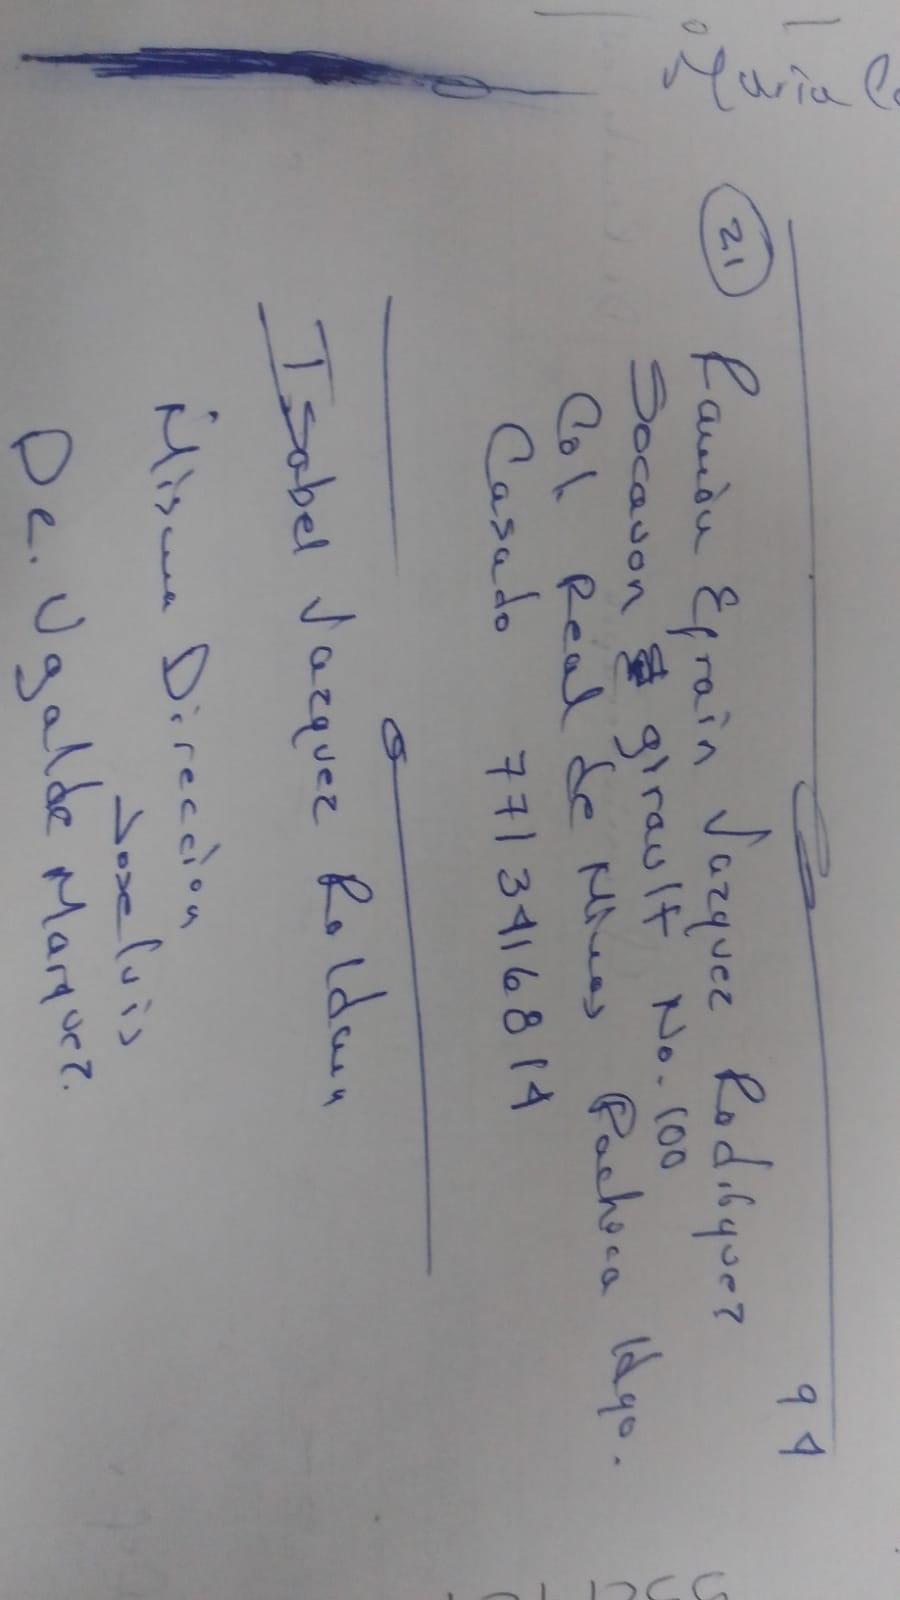 María
94
21 Ramón Efrain Vazquez Rodiguez
Socavon girault No. 100
Col. Real de Minas Pachuca Hgo.
Casado 7713416814
Isabel Vazquez Roldan
Misma Dirección
Jose Luis
De. Ugalde Marquez.